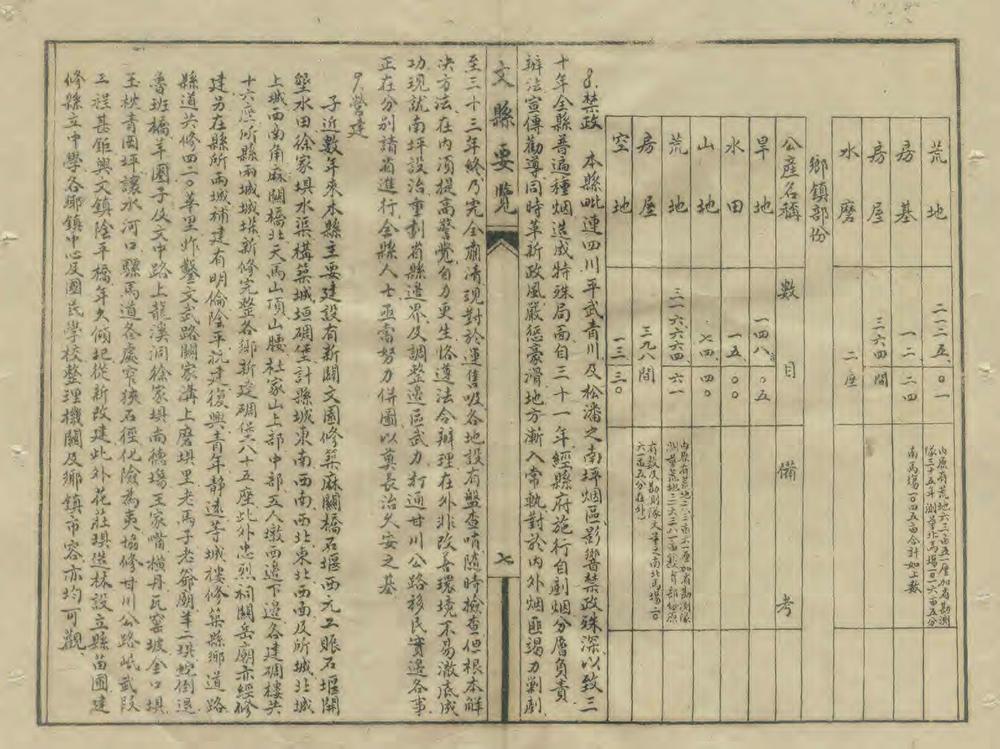 荒地 二一二五.〇一
房基 一二.二四
房屋 三六四間
水磨 二座
鄉鎮部份
公產名稱 數目 備考
旱地 一四八.〇五
水田 一五.〇〇
山地 七四.四〇
荒地 三一六六四.六一
房屋 三九八間
空地 一三.三〇
8.禁政 本縣毗連四川平武青川及松潘之南坪烟區影響禁政殊深以致三
十年全縣普遍種烟造成特殊局面自三十一年經縣府施行自剷烟分層負責
辦法宣傳勸導同時革新政風嚴懲豪滑地方漸入常軌對於內外烟匪竭力剿剷
至三十三年終乃完全肅清現對於運售吸各地設有盤查哨隨時檢查但根本解
決方法在內須提高警覺自力更生恪遵法令辦理在外非改善環境不易澈底成
功現就南坪設治重劃省縣邊界及調整邊區武力打通甘川公路移民實邊各事
正在分別請省進行全縣人士亟需努力併圖以奠長治久安之基
文縣要覽
七
9.營建
子近數年來本縣主要建設有新闢文園修築麻關橋石堰西元工賬石堰開
墾水田徐家垻水渠構築城垣碉堡計縣城東南西南西北東北西南及所城北城
上城西南角麻關橋北天馬山頂山腰杜家山上部中部五人墩西邊下邊各建碉樓共
十六座所縣兩城城垛新修完整各鄉新建碉堡八十五座此外忠烈祠關岳廟亦經修
建另在縣所兩城補建有明倫陰平抗建復興青年靜遠等城樓修築縣鄉道路
縣道共修四二〇華里炸鑿文武路關家溝上磨垻里老馬子老爺廟羊二垻蛇倒退
魯班橋羊圈子及文中路上龍溪洞徐家垻尚德場王家嘴橫丹瓦窑坡金口垻
玉枕青囤坪讓水河口騾馬道各處窄狹石徑化險為夷協修甘川公路岷武段
工程甚鉅興文鎮陰平橋年久傾圮從新改建此外花莊垻造林設立縣苗圃建
修縣立中學各鄉鎮中心及國民學校整理機關及鄉鎮市容亦均可觀